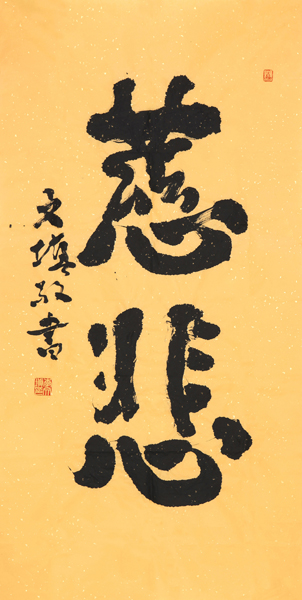 慈悲
文慎敬書